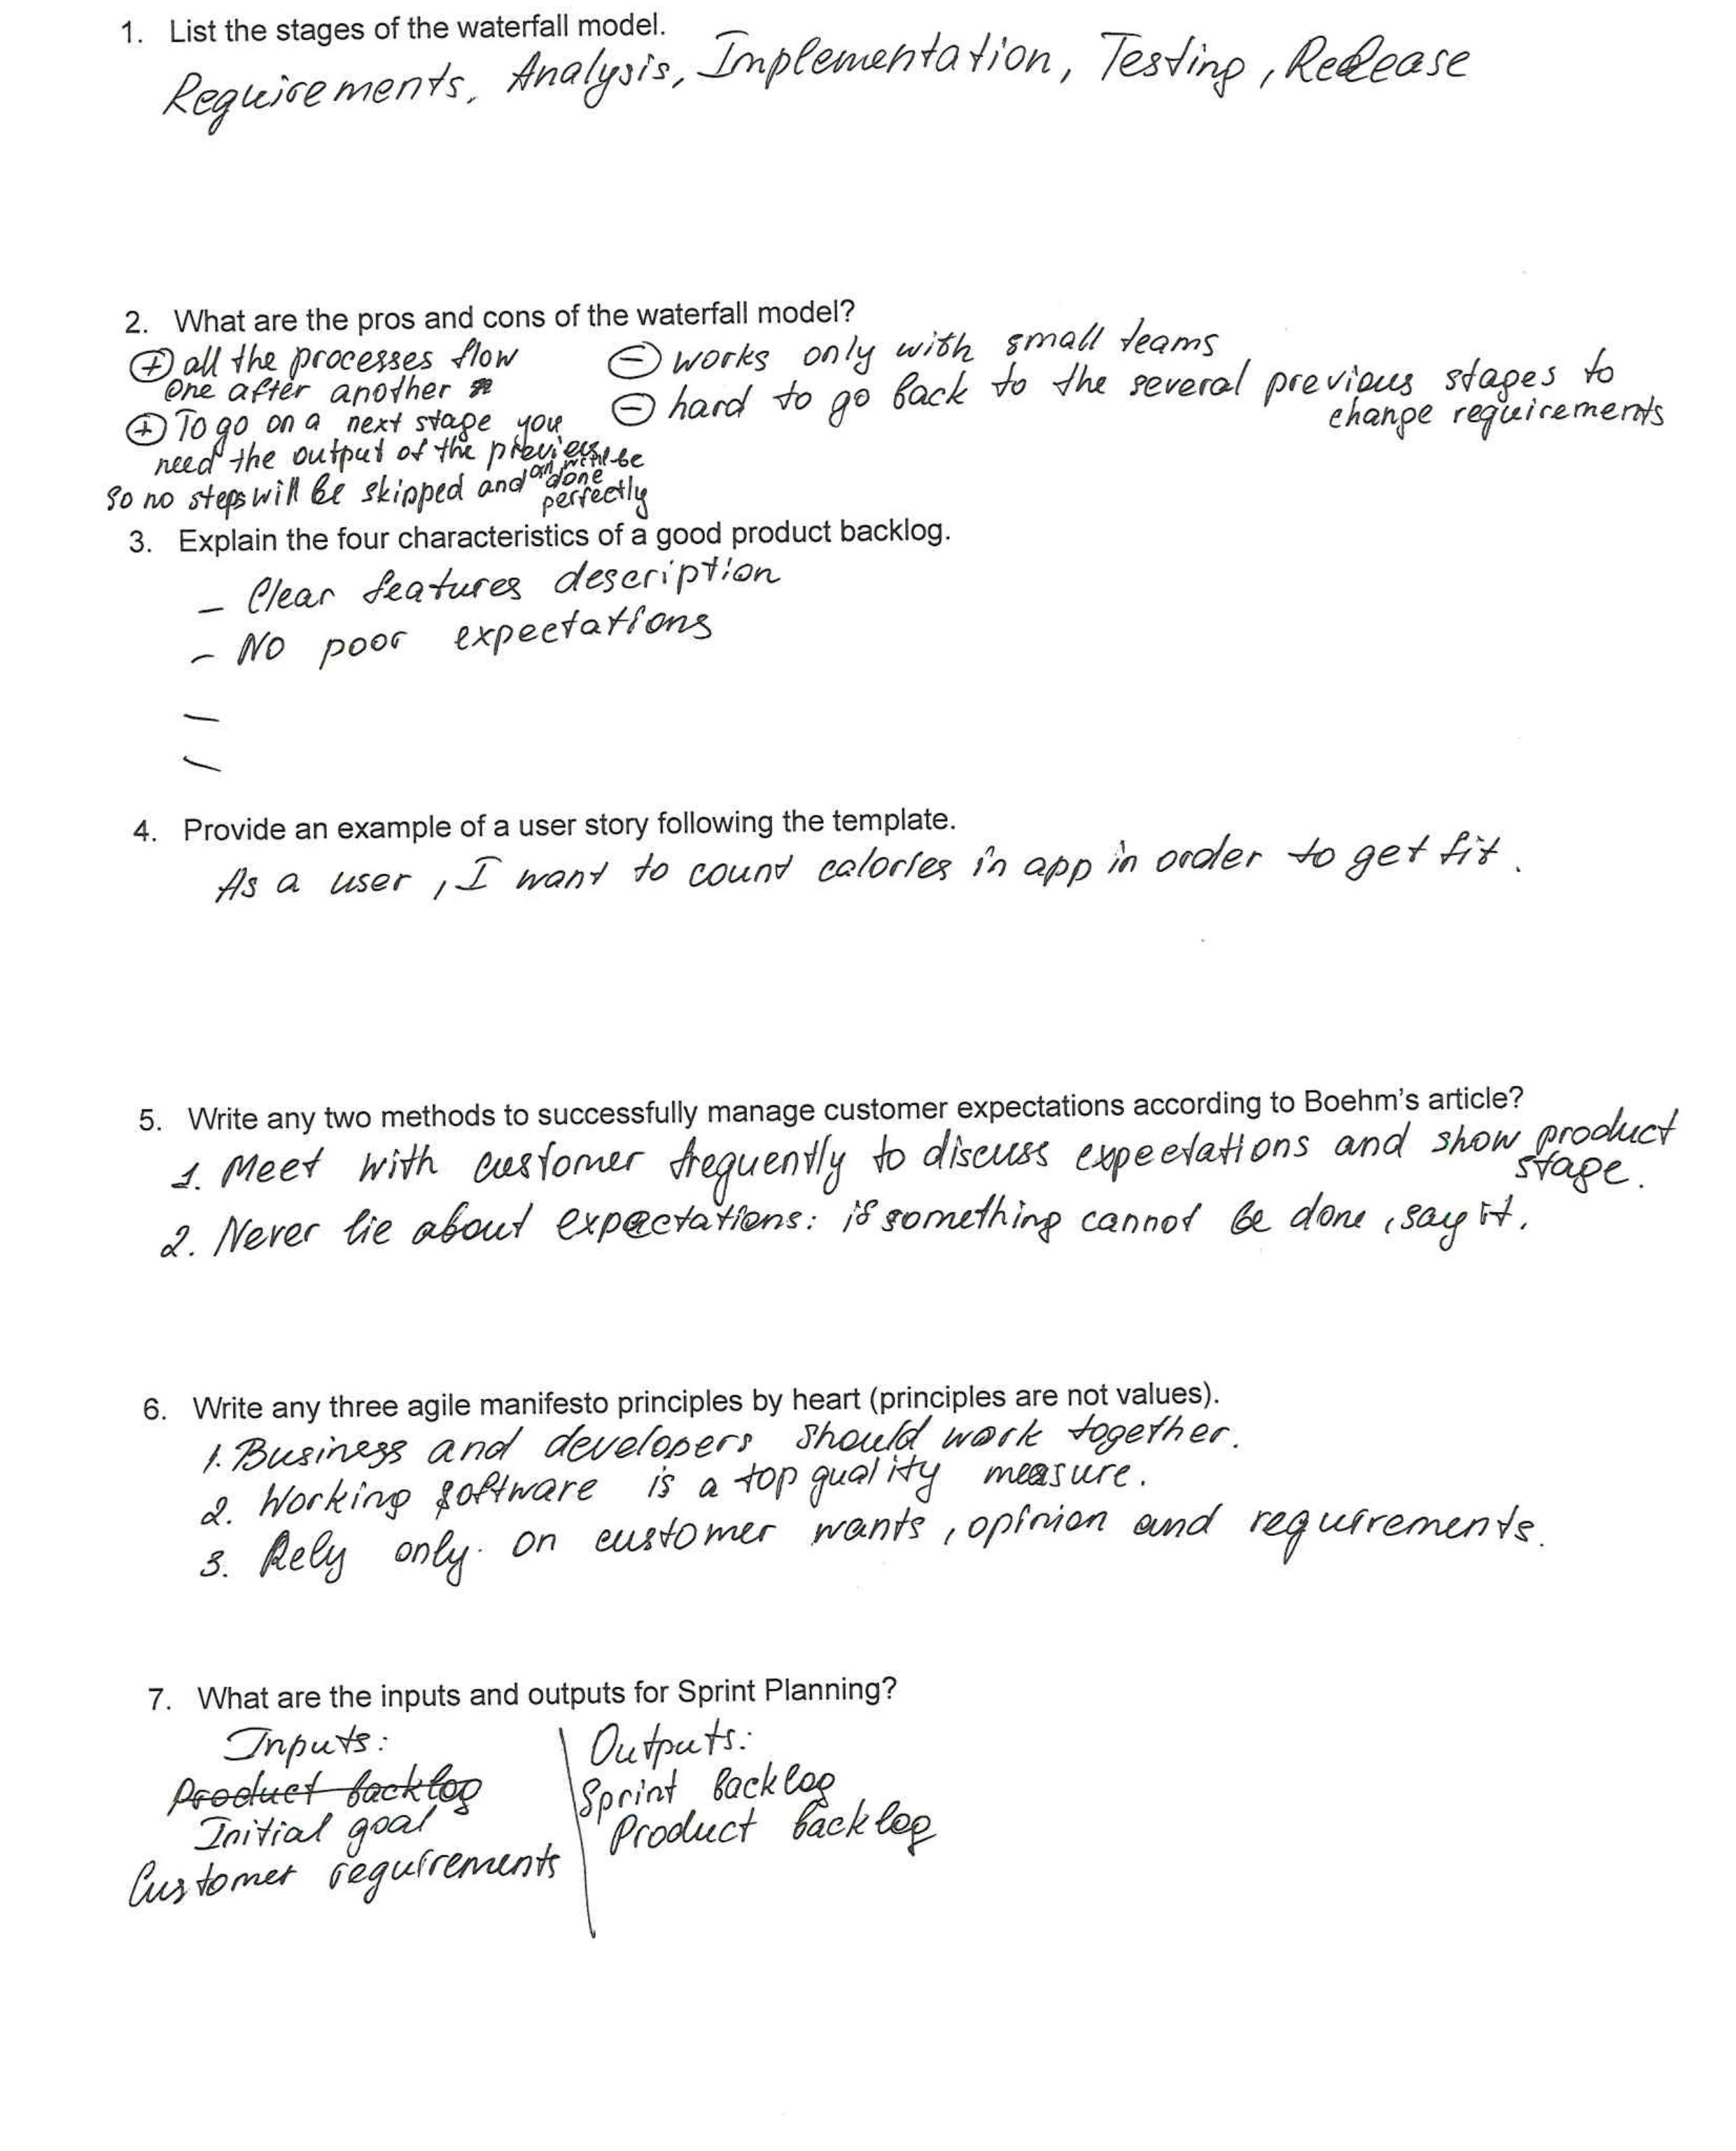 1. List the stages of the waterfall model.
Requirements, Analysis, Implementation, Testing, Release
2. What are the pros and cons of the waterfall model?
+ all the processes flow
one after another
+ To go on a next stage you
need the output of the previous,
so no steps will be skipped and will be
done
perfectly
- works only with small teams
- hard to go back to the several previous stages to
change requirements
3. Explain the four characteristics of a good product backlog.
- Clear features description
- No poor expectations
-
-
4. Provide an example of a user story following the template.
As a user, I want to count calories in app in order to get fit.
5. Write any two methods to successfully manage customer expectations according to Boehm's article?
1. Meet with customer frequently to discuss expectations and show product
stage.
2. Never lie about expectations: if something cannot be done, say it.
6. Write any three agile manifesto principles by heart (principles are not values).
1. Business and developers should work together.
2. Working software is a top quality measure.
3. Rely only on customer wants, opinion and requirements.
7. What are the inputs and outputs for Sprint Planning?
Inputs:
Product backlog
Initial goal
Customer requirements
Outputs:
Sprint Backlog
Product backlog